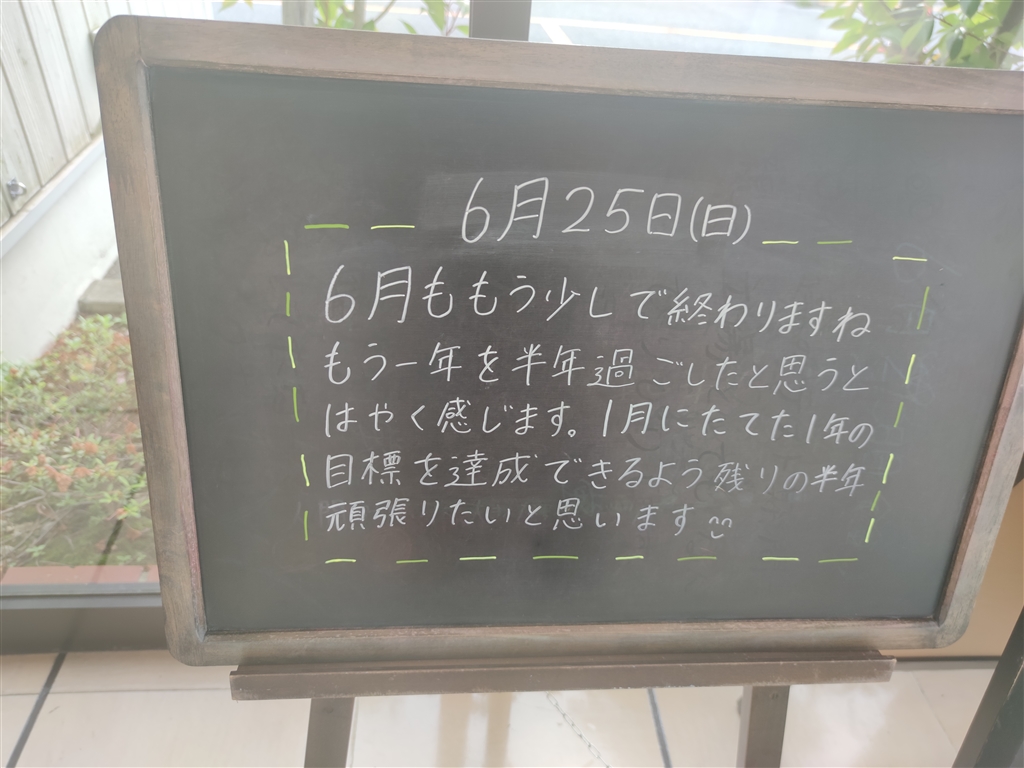 6月25日(日)
6月ももう少しで終わりますね
もう一年を半年過ごしたと思うと
はやく感じます。1月にたてた1年の
目標を達成できるよう残りの半年
頑張りたいと思います